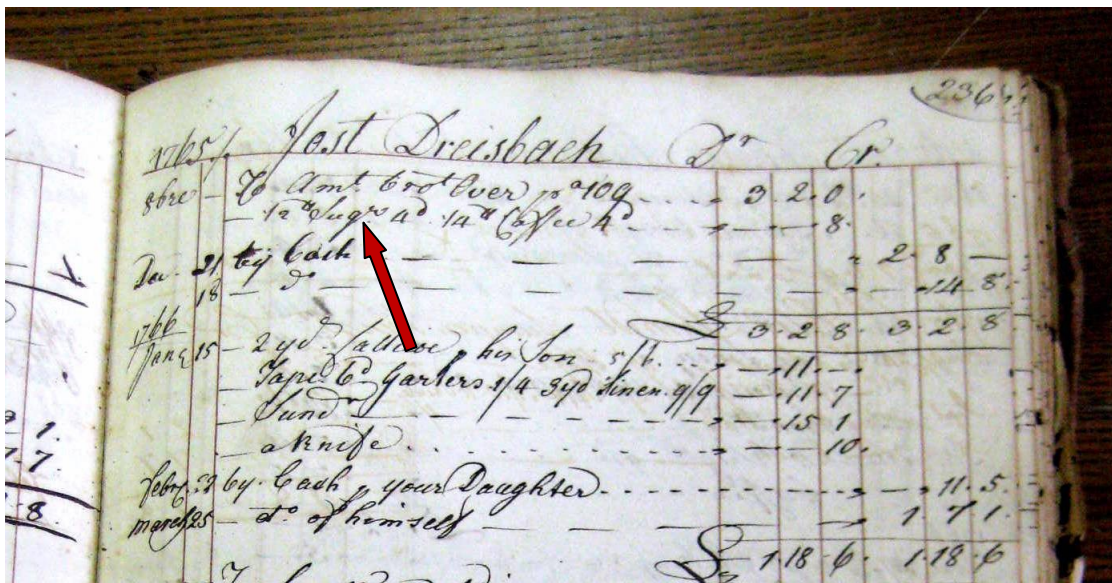 236
1765/. Jost Dreisbach Dr Cr.
8bre - To Amt brot Over pa 109 3 . 2 . 0 .
- Sugr 4d 14th Coffee 4d 8 .
21 by Cash 2 . 8 -
18 - do 14 8 .
3 . 2 8 3 . 2 . 8
1766
Jany 15 - 2 yd his Son 5/6 11 . -
- Tape 6d Garters 1/4 3yd Linen 9/9 11 . 7
- Sund 15 1
- a Knife 10 .
1 .
7 .
8 .
Febry by Cash your Daughter 11 . 5 .
March 25 - do of himself 1 7 1 .
1 . 18 . 6 . 1 . 18 . 6